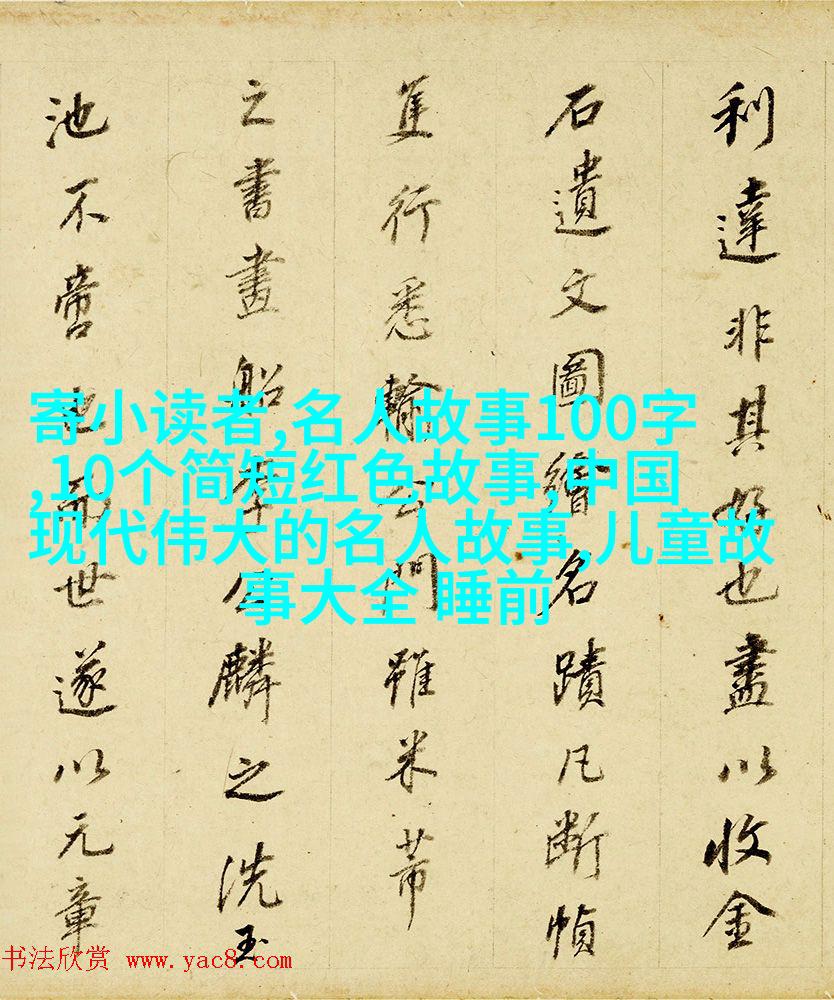 利達非其好也盡以收金
石遺文圖繪名蹟凡斷幀
隻行悉輸公門雖米芾
之書畫船李公麟之洗玉
池不啻也而世遂以元章
寄小读者,名人故事100字
,10个简短红色故事,中国
现代伟大的名人故事,儿童故
事大全 睡前
书法欣赏 www.yac8.com